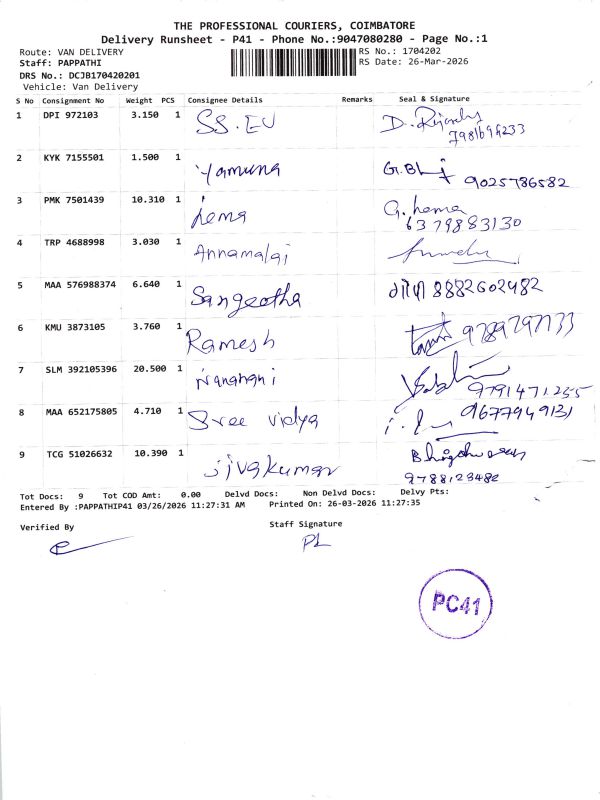 THE PROFESSIONAL COURIERS, COIMBATORE
Delivery Runsheet - P41 - Phone No.:9047080280 - Page No.:1
Route: VAN DELIVERY RS No.: 1704202
Staff: PAPPATHI RS Date: 26-Mar-2026
DRS No.: DCJB170420201
Vehicle: Van Delivery
S No Consignment No Weight PCS Consignee Details Remarks Seal & Signature
1 DPI 972103 3.150 1 SS.EU D.
2 KYK 7155501 1.500 1 Yamuna 9025786582
3 PMK 7501439 10.310 1 Hema G. hema
6379883130
4 TRP 4688998 3.030 1 Annamalai
5 MAA 576988374 6.640 1 Sangeetha 8882602482
6 KMU 3873105 3.760 1 Ramesh
7 SLM 392105396 20.500 1 9791471255
8 MAA 652175805 4.710 1 Sree vidya 9677949131
9 TCG 51026632 10.390 1 jivakumar
9788123482
Tot Docs: 9 Tot COD Amt: 0.00 Delvd Docs: Non Delvd Docs: Delvy Pts:
Entered By :PAPPATHIP41 03/26/2026 11:27:31 AM Printed On: 26-03-2026 11:27:35
Verified By Staff Signature
PC41